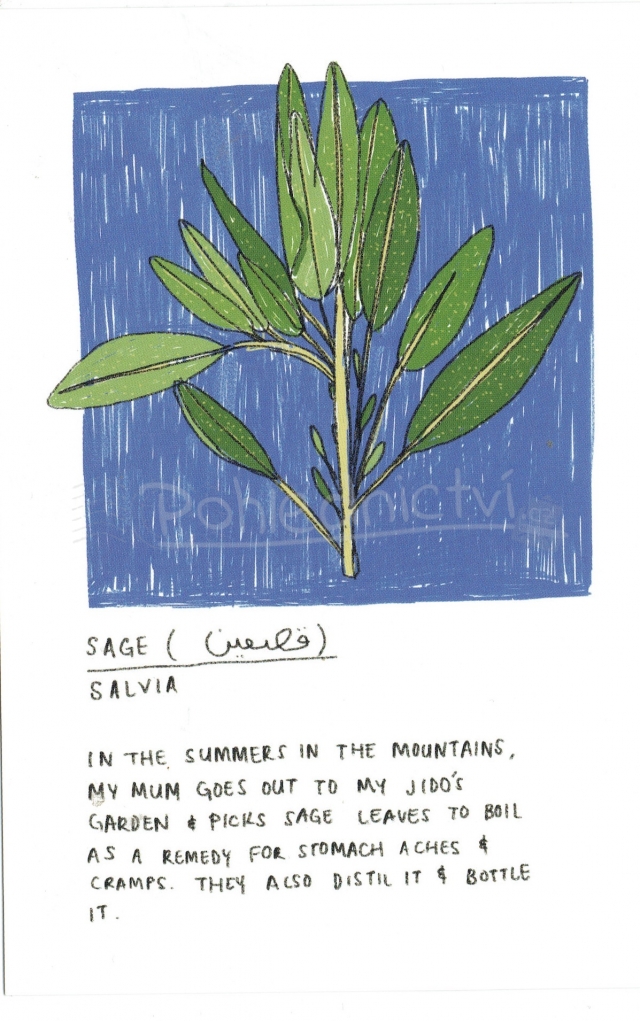 Pohlednictví
SAGE (قصعين)
SALVIA
IN THE SUMMERS IN THE MOUNTAINS,
MY MUM GOES OUT TO MY JIDO'S
GARDEN & PICKS SAGE LEAVES TO BOIL
AS A REMEDY FOR STOMACH ACHES &
CRAMPS. THEY ALSO DISTIL IT & BOTTLE
IT.